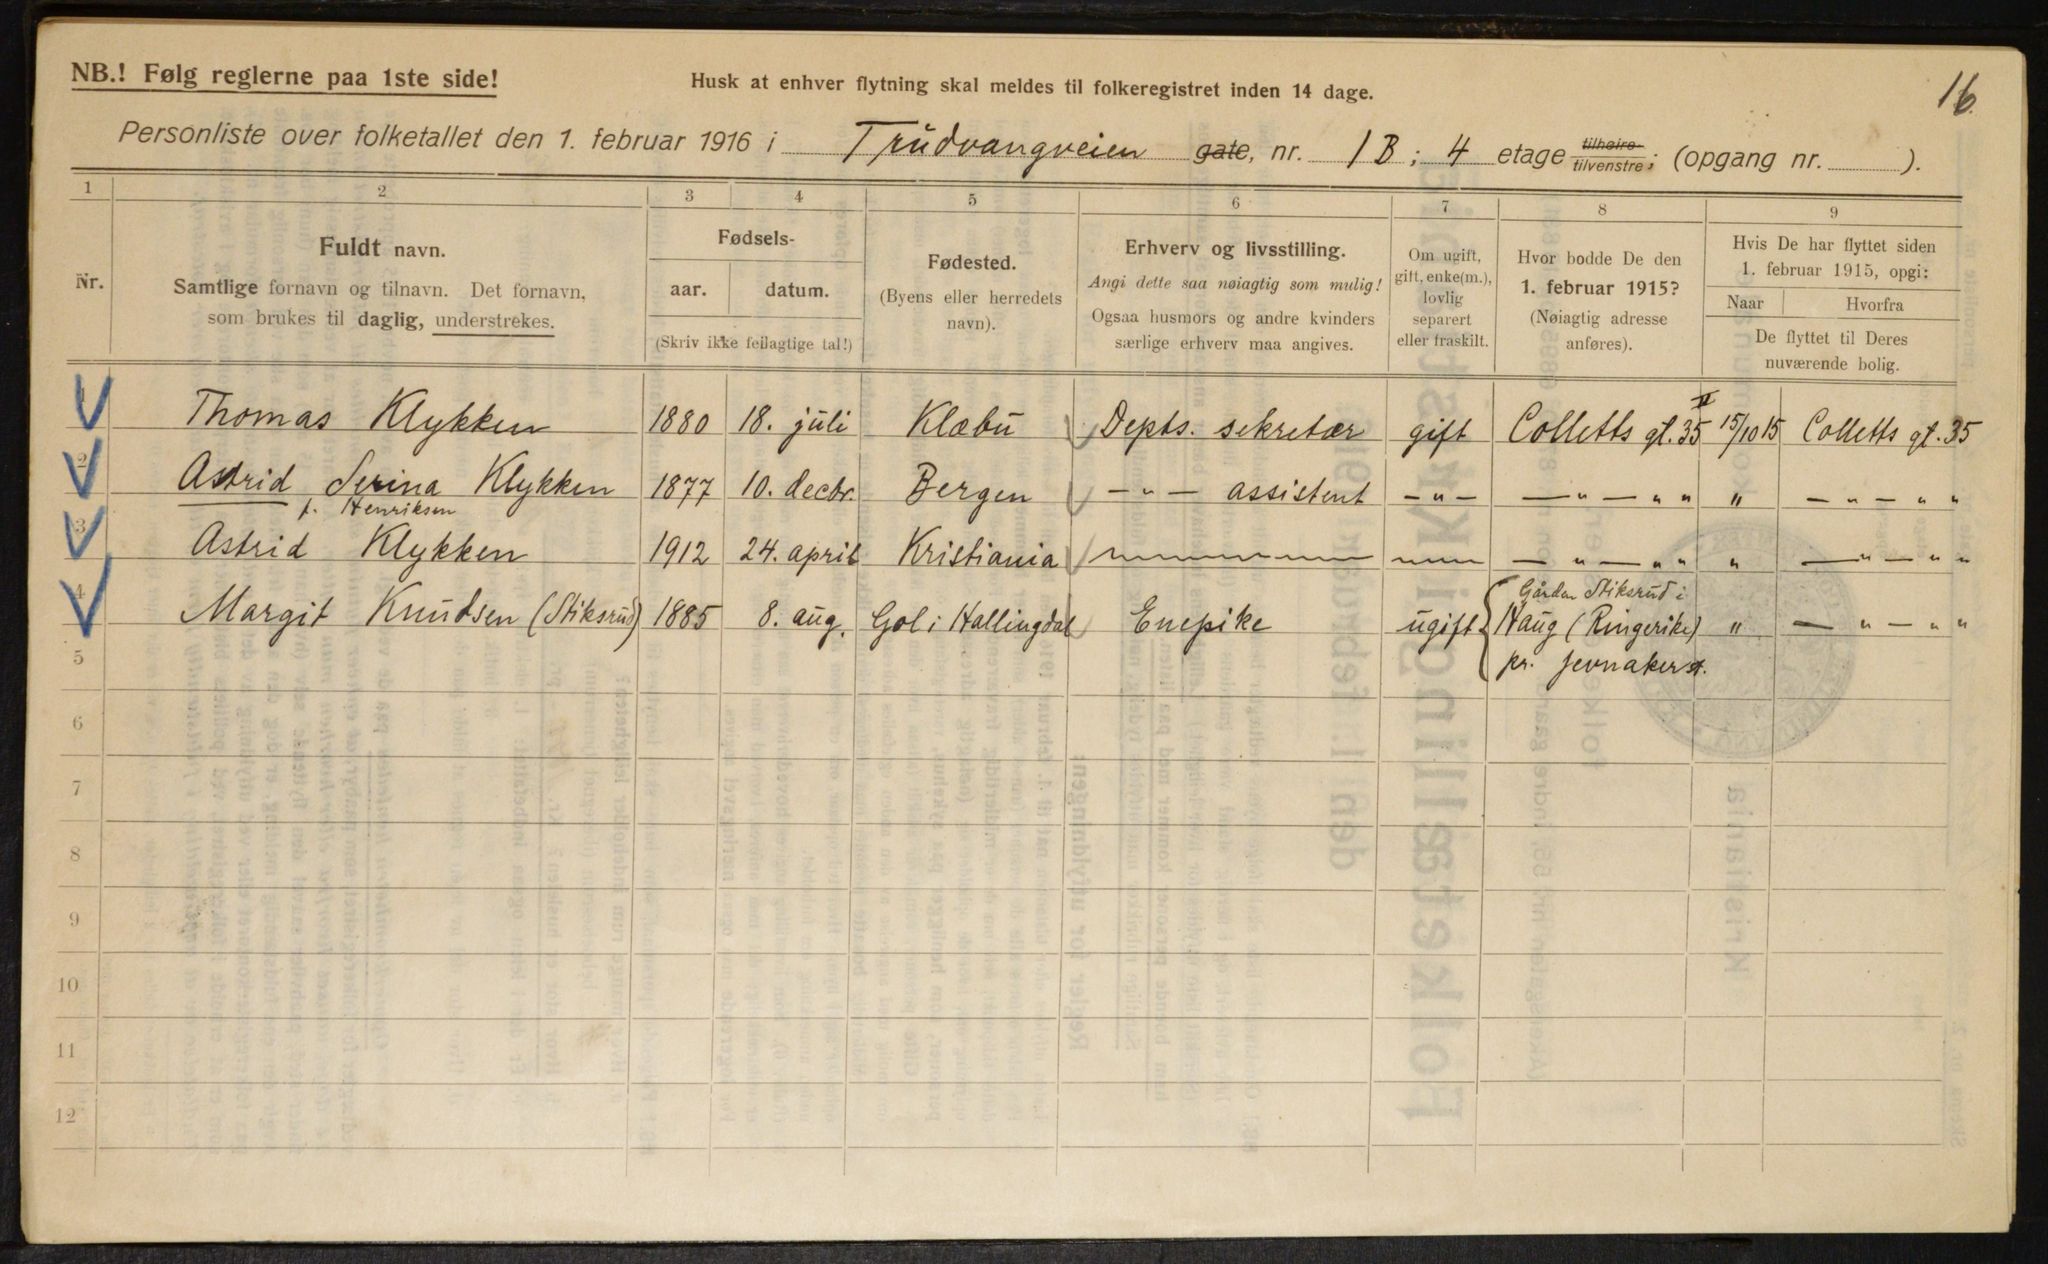 16
NB.! Følg reglerne paa 1ste side!
Husk at enhver flytning skal meldes til folkeregistret inden 14 dage.
Personliste over folketallet den 1. februar 1916 i Trudvangveien gate, nr. 1B; 4 etage tilhøire tilvenstre; (opgang nr. ).
1 2 3 4 5 6 7 8 9
Nr.
Fuldt navn.
Samtlige fornavn og tilnavn. Det fornavn,
som brukes til daglig, understrekes.
Fødsels-
aar. datum.
(Skriv ikke feilagtige tal!)
Fødested.
(Byens eller herredets
navn).
Erhverv og livsstilling.
Angi dette saa nøiagtig som mulig!
Ogsaa husmors og andre kvinders
særlige erhverv maa angives.
Om ugift,
gift, enke(m.),
lovlig
separert
eller fraskilt.
Hvor bodde De den
1. februar 1915?
(Nøiagtig adresse
anføres).
Hvis De har flyttet siden
1. februar 1915, opgi:
Naar Hvorfra
De flyttet til Deres
nuværende bolig.
1 Thomas Klykken 1880 18. juli Klæbu Depts. sekretær gift Colletts gt. 35 II 15/10 15 Colletts gt. 35
2 Astrid Serina Klykken 1877 10. decbr. Bergen — " — assistent — " — — " — " " " — " — " "
f. Henriksen
3 Astrid Klykken 1912 24. april Kristiania — " — " " " — " — " "
4 Margit Knudsen (Stiksrud) 1885 8. aug. Gol i Hallingdal Enepike ugift Gården Stiksrud i
Haug (Ringerike) " — " — " "
pr. Jevnaker st.
5
6
7
8
9
10
11
12